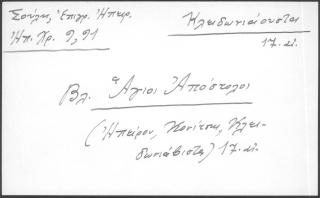 Σούλης, Ἐπιγρ. Ἠπείρ.
Κλειδωνιάουστα
Ἠπ. Χρ. 9, 91
17. αἰ.
Βλ. Ἅγιοι Ἀπόστολοι
(Ἠπείρου, Κονίτσης, Κλει-
δωνιάβιστα) 17. αἰ.